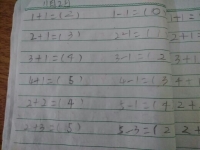 11月2日
1+1=(2) 1-1=(0) 1+1=(
2+1=(3) 2-1=(
3+1=(4) 3-1=(2
4+1=(5) 4-1=(3 4+
2+2=(4) 5-1=(4 2+
2+3=(5) 5-3=(2 2+